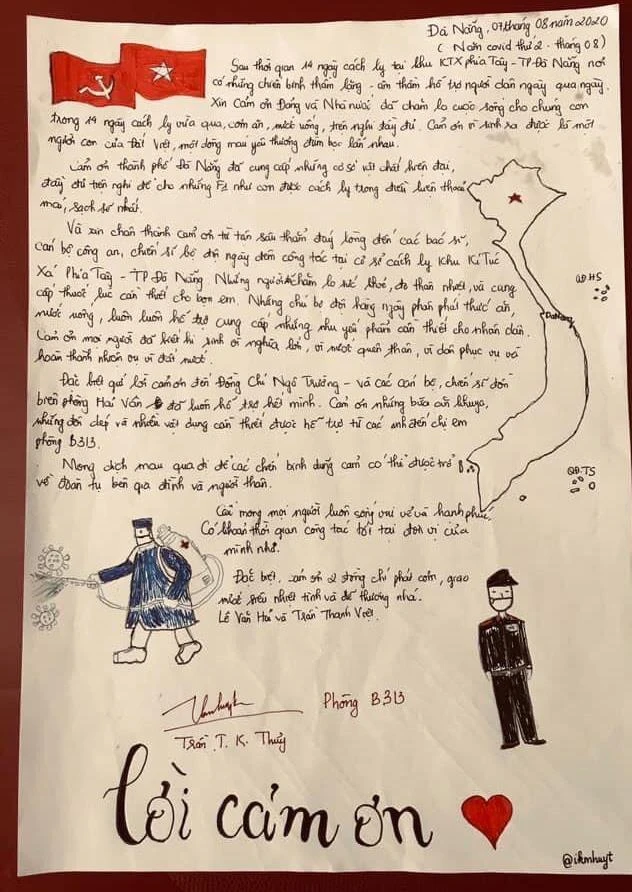 Đà Nẵng, 07 tháng 08 năm 2020
(Năm covid thứ 2 - tháng 08)
Sau thời gian 14 ngày cách ly tại khu KTX phía Tây - TP Đà Nẵng nơi
có những chiến binh thầm lặng - âm thầm hỗ trợ người dân ngày qua ngày.
Xin Cảm ơn Đảng và Nhà nước đã chăm lo cuộc sống cho chúng con
trong 14 ngày cách ly vừa qua, cơm ăn, nước uống, tiện nghi đầy đủ. Cảm ơn vì sinh ra được là một
người con của Đất Việt, một dòng máu yêu thương đùm bọc lẫn nhau.
Cảm ơn thành phố Đà Nẵng đã cung cấp những cơ sở vật chất hiện đại,
đầy đủ tiện nghi để cho những F1 như con được cách ly trong điều kiện thoải
mái, sạch sẽ nhất.
Và xin chân thành cảm ơn từ tận sâu thẳm đáy lòng đến các bác sĩ,
cán bộ công an, chiến sĩ bộ đội ngày đêm công tác tại cơ sở cách ly Khu Kí Túc
Xá Phía Tây - TP Đà Nẵng. Những người chăm lo sức khoẻ, đo thân nhiệt, và cung
cấp thuốc lúc cần thiết cho bọn em. Những chú bộ đội hằng ngày phân phát thức ăn,
nước uống, luôn luôn hỗ trợ cung cấp những nhu yếu phẩm cần thiết cho nhân dân.
Cảm ơn mọi người đã biết hi sinh vì nghĩa lớn, vì nước quên thân, vì dân phục vụ và
hoàn thành nhiệm vụ vì đất nước.
Đặc biệt gửi lời cảm ơn đến Đồng Chí Ngô Trường - và các cán bộ, chiến sĩ đồn
biên phòng Hải Vân đã luôn hỗ trợ hết mình. Cảm ơn những bữa ăn khuya,
những đôi dép và nhiều vật dụng cần thiết được hỗ trợ từ các anh đến chị em
phòng B313.
Mong dịch mau qua đi để các chiến binh dũng cảm có thể được trở
về đoàn tụ bên gia đình và người thân.
Cầu mong mọi người luôn sống vui vẻ và hạnh phúc.
Có khoảng thời gian công tác tốt tại đơn vị của
mình nhé.
Đặc biệt, cảm ơn 2 đồng chí phát cơm, giao
nước siêu nhiệt tình và dễ thương nhá.
Lê Văn Hải và Trần Thanh Việt.
QĐ.HS
Da Nang
QĐ.TS
Phòng B313
Trần T. K. Thuỷ
lời cảm ơn
@ikmhuyt